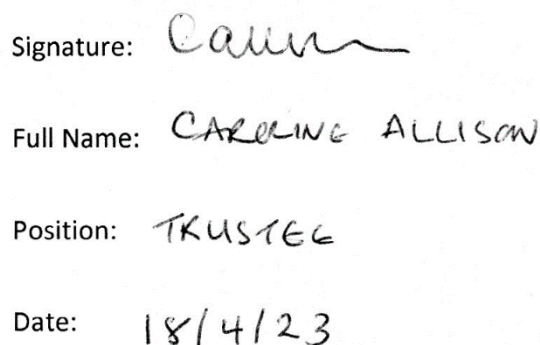 Signature:
Full Name: CAROLINE ALLISON
Position: TRUSTEE
Date: 18/4/23